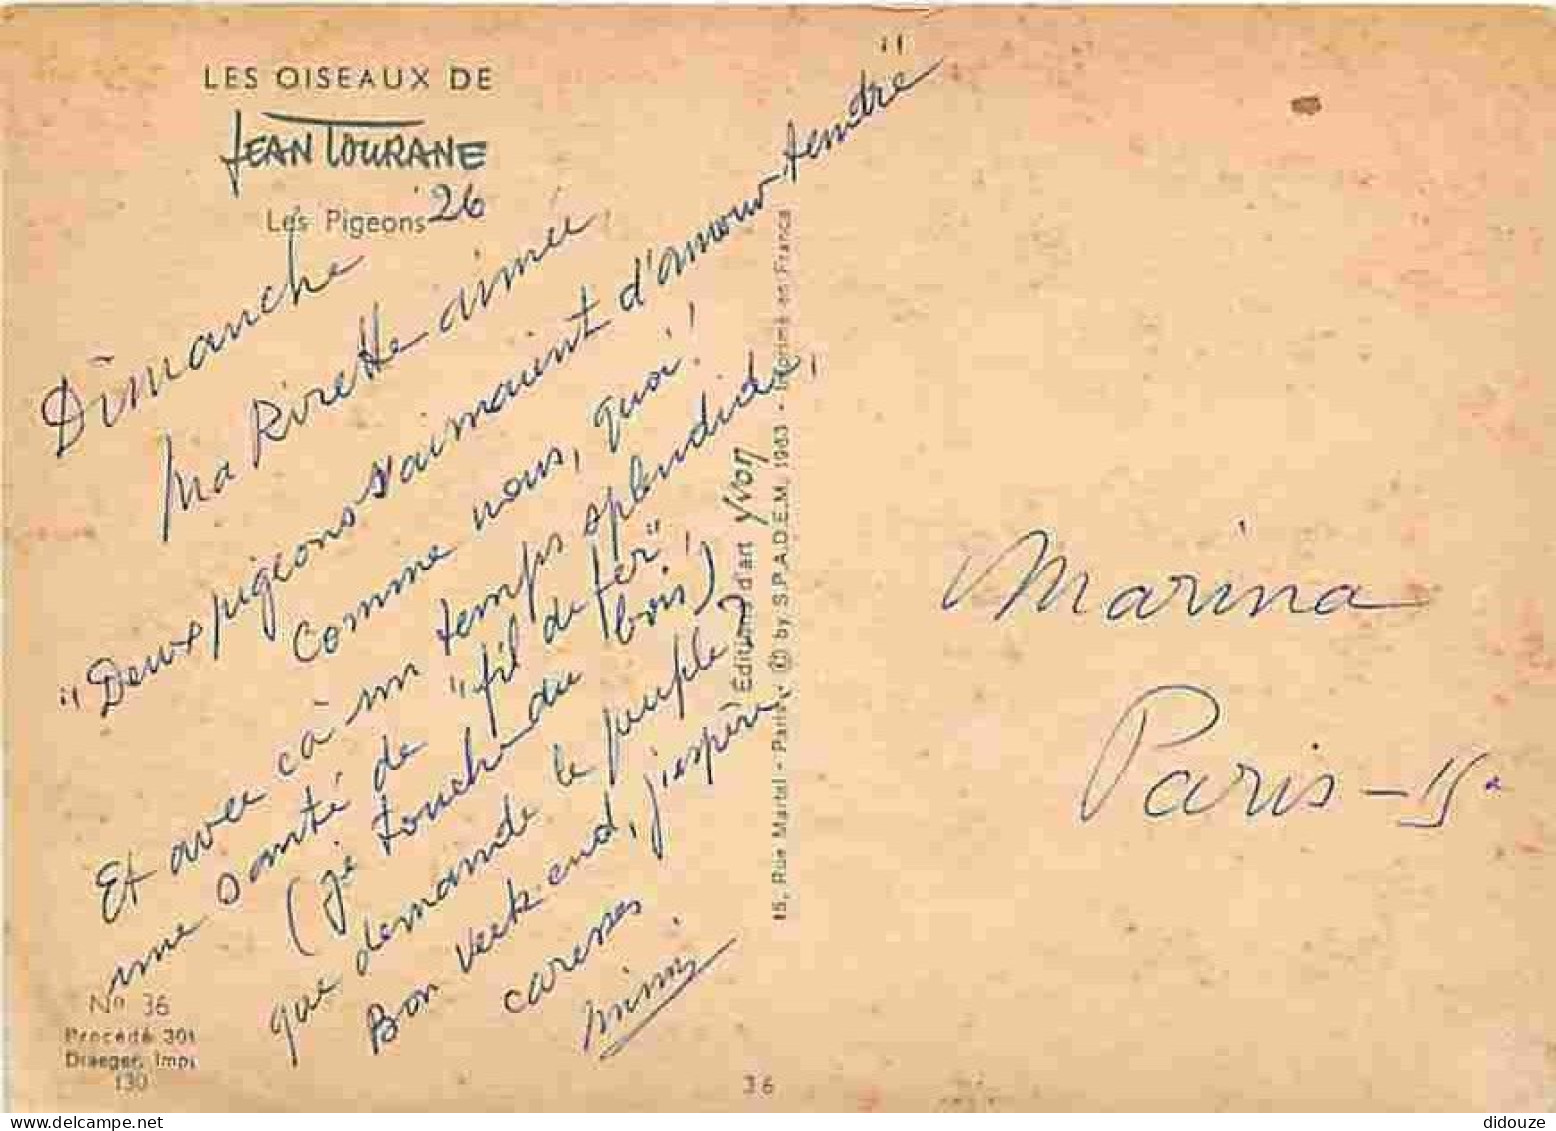 LES OISEAUX DE
JEAN TOURANE
Les Pigeons
Dimanche 26
Ma Rirette aimée
"Deux pigeons s'aimaient d'amour tendre"
comme nous, quoi!
Et avec ça un temps splendide,
une santé de "fil de fer",
(je touche du bois)
que demande le peuple?
Bon week end, j'espère.
caresses
Mimi
No 36
Procédé 301
Draeger, Imp.
130
Éditions d'art Yvon
15, Rue Martel - Paris - © by S.P.A.D.E.M. 1963 - Imprimé en France
36
Marina
Paris - 15e
didouze